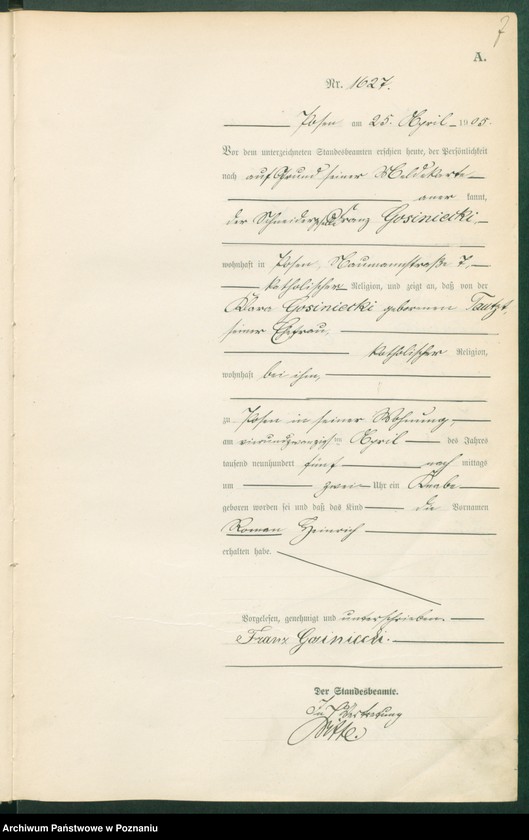 7
A.
Nr. 1627.
Posen am 25. April 1905.
Vor dem unterzeichneten Standesbeamten erschien heute, der Persönlichkeit
nach auf Grund seiner Meldekarte
aner kannt,
der Schneidergeselle Franz Gosiniecki
wohnhaft in Posen, Naumannstraße 7,
katholischer Religion, und zeigt an, daß von der
Klara Gosiniecki geborenen
seiner Ehefrau,
katholischer Religion,
wohnhaft bei ihm,
zu Posen in seiner Wohnung,
am vierundzwanzigsten April des Jahres
tausend neunhundert fünf nach mittags
um zwei Uhr ein Knabe
geboren worden sei und daß das Kind die Vornamen
Roman Heinrich
erhalten habe.
Vorgelesen, genehmigt und unterschrieben
Franz Gosiniecki.
Der Standesbeamte.
In Vertretung
Archiwum Państwowe w Poznaniu